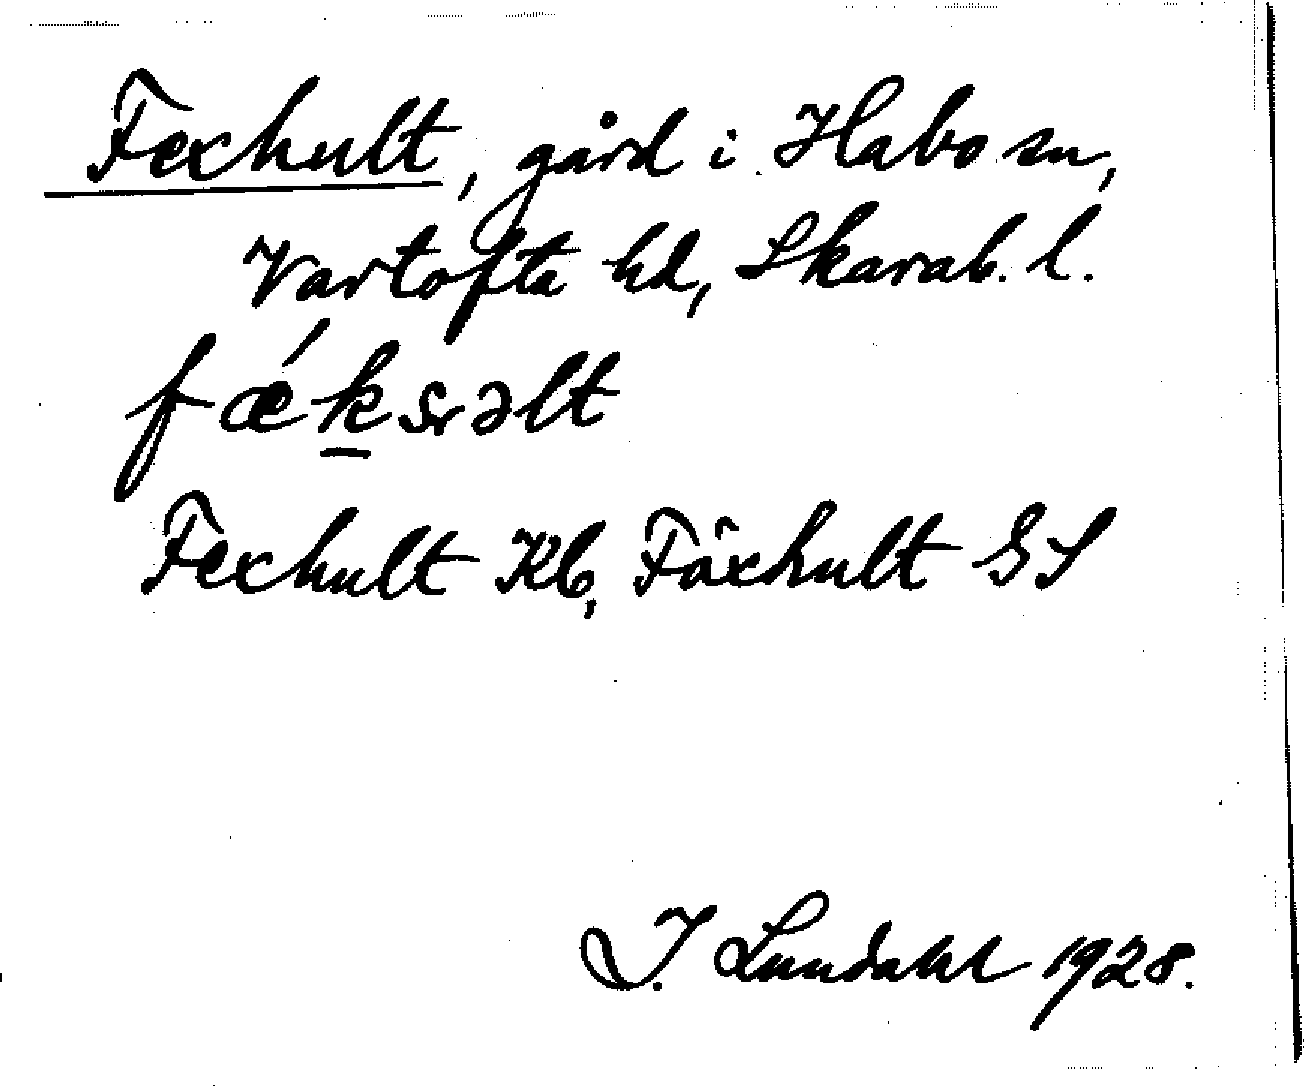 Fexhult, gård i Habo sn,
Vartofta hd, Skarab. l.
fǽksəlt
Fexhult Kb, Fäxhult GS
I. Lundahl 1928.